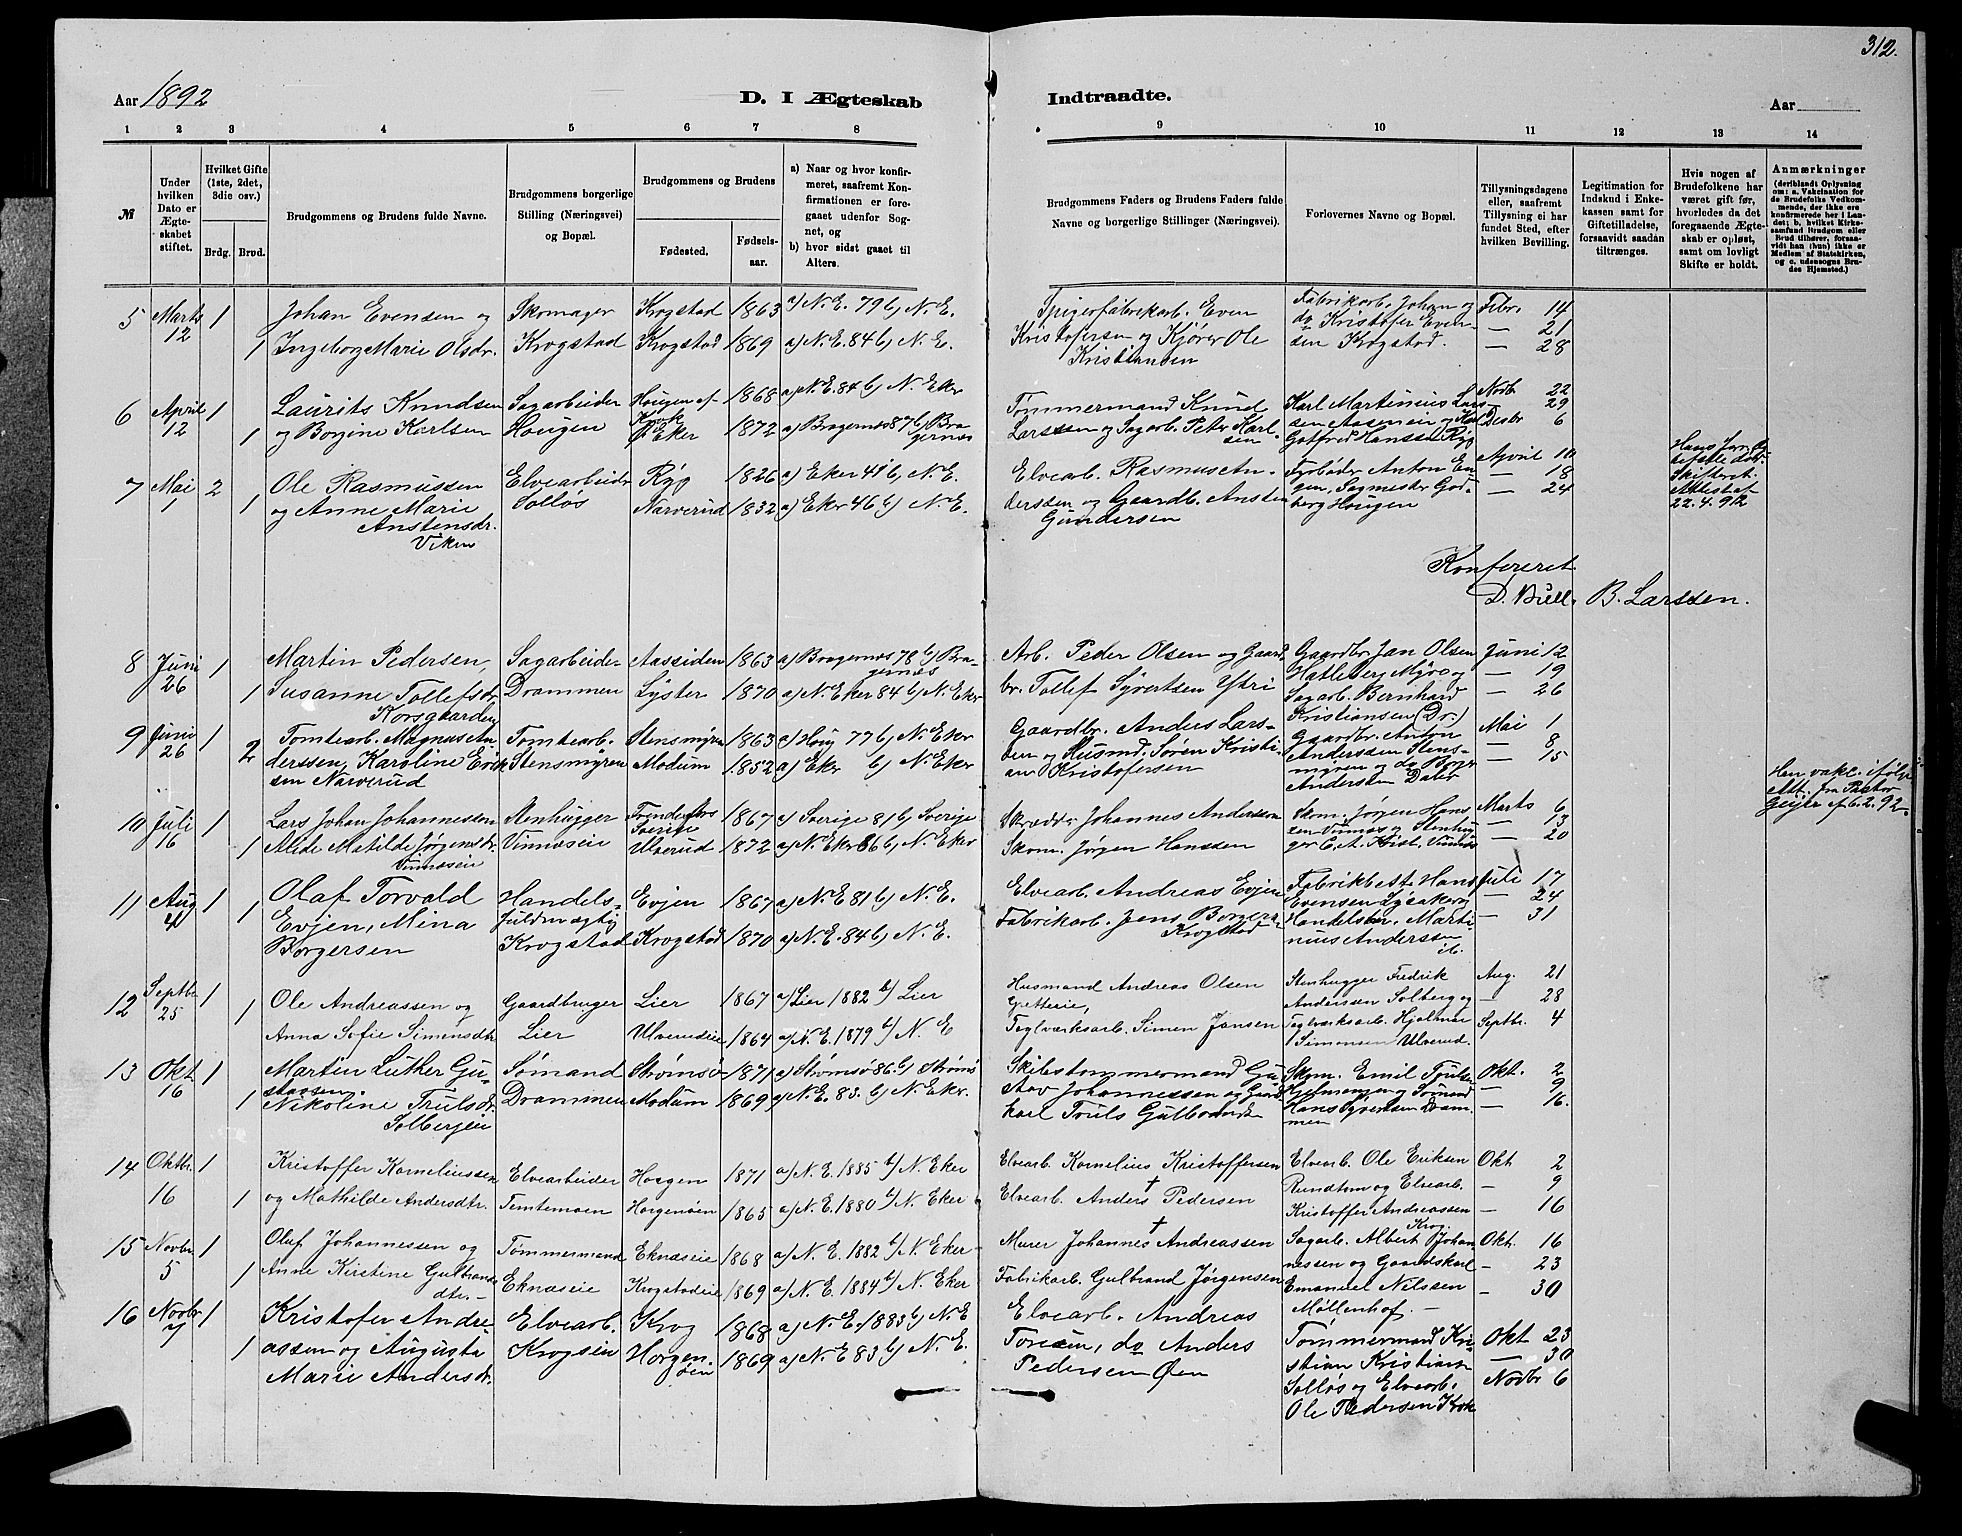 312.
Aar 1892
D. I Ægteskab
Indtraadte.
Aar
1 2 3 4 5 6 7 8 9 10 11 12 13 14
№
Under hvilken Dato er Ægteskabet stiftet.
Hvilket Gifte (1ste, 2det, 3die osv.)
Brdg. Brud.
Brudgommens og Brudens fulde Navne.
Brudgommens borgerlige Stilling (Næringsvei) og Bopæl.
Brudgommens og Brudens
Fødested. Fødselsaar.
a) Naar og hvor konfirmeret, saafremt Konfirmationen er foregaaet udenfor Sognet, og
b) hvor sidst gaaet til Alters.
Brudgommens Faders og Brudens Faders fulde Navne og borgerlige Stillinger (Næringsvei).
Forlovernes Navne og Bopæl.
Tillysningsdagene eller, saafremt Tillysning ei har fundet Sted, efter hvilken Bevilling.
Legitimation for Indskud i Enkekassen samt for Giftetilladelse, forsaavidt saadan tiltrænges.
Hvis nogen af Brudefolkene har været gift før, hvorledes da det foregaaende Ægteskab er opløst, samt om lovligt Skifte er holdt.
Anmærkninger
5 Marts 12 1 1
Johan Evensen og
Ingeborg Marie Olsdr.
Skomager
Krogstad
Krogstad 1863 a) N. E. 79 b) N. E.
Krogstad 1869 a) N. E. 84 b) N. E.
Spigerfabrikarb. Even
Kristofersen og Kjører Ole
Kristiansen
Fabrikarb. Johan og
do Kristofer Even-
sen Krogstad.
Febr. 14
— 21
— 28
6 April 12 1 1
Laurits Knudsen
og Borgine Karlsen
Sagarbeider
Hougen
Hougen 1868 a) N. E. 84 b) N. Eker
Eker 1872 a) Bragernes 87 b) Bragernes
Tømmermand Knud
Larssen og Sagarb. Peter Karlsen.
Karl Martinius Lars-
sen Aaseneie og Karl
Gotfred Hanssen Ryg
Novb 22
29
Decbr 6
7 Mai 1 2 1
Ole Rasmussen
og Anne Marie
Anstensdr.
Viken
Elvearbeider
Solløs
Ryg 1826 a) Eker 41 b) N. E.
Narverud 1832 a) Eker 46 b) N. E.
Elvearb. Rasmus An-
derssen og Gaardb. Ansten
Gundersen
Fyrbøder Anton En
gen, Sagmester God-
berg Hougen
April 10
— 18
— 24
Skifteret.
Attest af
22.4.92
Konfereret
D. Bull. B. Larssen.
8 Juni 26 1 1
Martin Pedersen,
Susanne Tollefsdr
Korsgaarden
Sagarbeider
Drammen
Aassiden 1863 a) Bragernes 78 b) Bragernes
Lyster 1870 a) N. Eker 84 b) N. Eker
Arb. Peder Olsen og Gaard
br. Tollef Syvertsen Ytri
Gaardbr. Jan Olsen
Hatleberg Myre og
Sagarb. Bernhard
Kristiansen (Dr.)
Juni 12
— 19
— 26
9 Juni 26 1 2
Tomtearb. Magnus An
derssen, Karoline Erik
sen Narverud
Tomtearb.
Stensmyren
Stensmyren 1863 a) Houg 77 b) N. Eker
Modum 1852 a) Eker b) N. Eker
Gaardbr. Anders Lars-
sen og Husmd. Søren Kristi-
an Kristofersen
Gaardbr. Anton
Anderssen Stens-
myren og do Borger
Andersen Daler
Mai 1
— 8
— 15
10 Juli 16 1 1
Lars Johan Johannessen
Alide Matilde Jørgensdr.
Vinnæseie
Stenhugger
Vinnæseie
Sverige 1867 a) Sverige 81 b) Sverige
Ulverud 1872 a) N. Eker 86 b) N. Eker
Skrædder Johannes Anderssen
Skom. Jørgen Hanssen
Skom. Jørgen Hans
sen Vinnæs og Stenhug
ger C. A. Krist. Vinnæs
Marts 6
— 13
— 20
Geijer af 6.2.92.
11 Aug 4 1 1
Olaf Torvald
Evjen, Mina
Borgersen
Handels-
fuldmægtig
Krogstad
Evjen 1867 a) N. E. 81 b) N. E.
Krogstad 1870 a) N. E. 84 b) N. E.
Elvearb. Andreas Evjen
Fabrikarb. Jens Borgers
Krogstad
Fabrikbest. Hans
Evensen Lysaker og
Handelsbr. Marti-
nius Anderssen
ib.
Juli 17
— 24
— 31
12 Septbr 25 1 1
Ole Andreassen og
Anna Sofie Simensdtr
Gaardbruger
Lier
Lier 1867 a) Lier 1882 b) Lier
Ulverudeie 1864 a) N. E. 1879 b) N. E
Husmand Andreas Olsen
Teglværksarb. Simen Jansen
Stenhugger Fredrik
Andersen Solberg og
Teglværksarb. Hjalmar
Simensen Ulverud
Aug. 21
— 28
Septbr. 4
13 Okt 16 1 1
Martin Luther Gu-
stavsen.
Nikoline Trulsdr.
Solbergeie
Sømand
Drammen
Strømsø 1871 a) Strømsø 86 b) Strømsø
Modum 1869 a) N. E. 83. b) N. Eker.
Skibstømmermand Gu-
stav Johannessen og Gaard
karl Truls Gulbrands
Skom. Emil Trulsen
og Sømand
Hans Syvertsen Dram-
men
Okt. 2
— 9
— 16.
14 Oktbr. 16 1 1
Kristoffer Korneliussen
og Mathilde Andersdtr.
Elvearbeider
Temtemoen
Horgen 1871 a) N. E. 1885 b) N. Eker
Horgenøen 1865 a) N. E. 1880 b) N. Eker
Elvearb. Kornelius Kristoffersen
Elvearb. Anders † Pedersen
Elvearb. Ole Eriksen
Rundtom og Elvearb.
Kristoffer Andreassen
Krog.
Okt 2
— 9
— 16
15 Novbr 5 1 1
Oluf Johannessen og
Anne Kirstine Gulbrands
dtr.
Tømmermand
Eknæseie
Eknæseie 1868 a) N. E. 1882 b) N. Eker
Krogstadeie 1869 a) N. E. 1884 b) N. Eker
Murer Johannes † Andreassen
Fabrikarb. Gulbrand Jørgensen
Sagarb. Albert Johan-
nessen og Gaardskarl
Emanuel Nilssen
Møllenhof. —
Okt. 16
— 23
— 30
16 Novbr 7 1 1
Kristofer Andre-
assen og Augusta
Marie Andersdr.
Elvearb.
Krogseie
Krog 1868 a) N. E. 1883 b) N. E
Horgen-
øen 1869 a) N. E 83 b) N. E.
Elvearb. Andreas
Toresen, do Anders
Pedersen Øen
Tømmermand Kri-
stian Kristiansen
Solløs og Elvearb.
Ole Pedersen Krok
Okt 23
— 30
Novbr 6